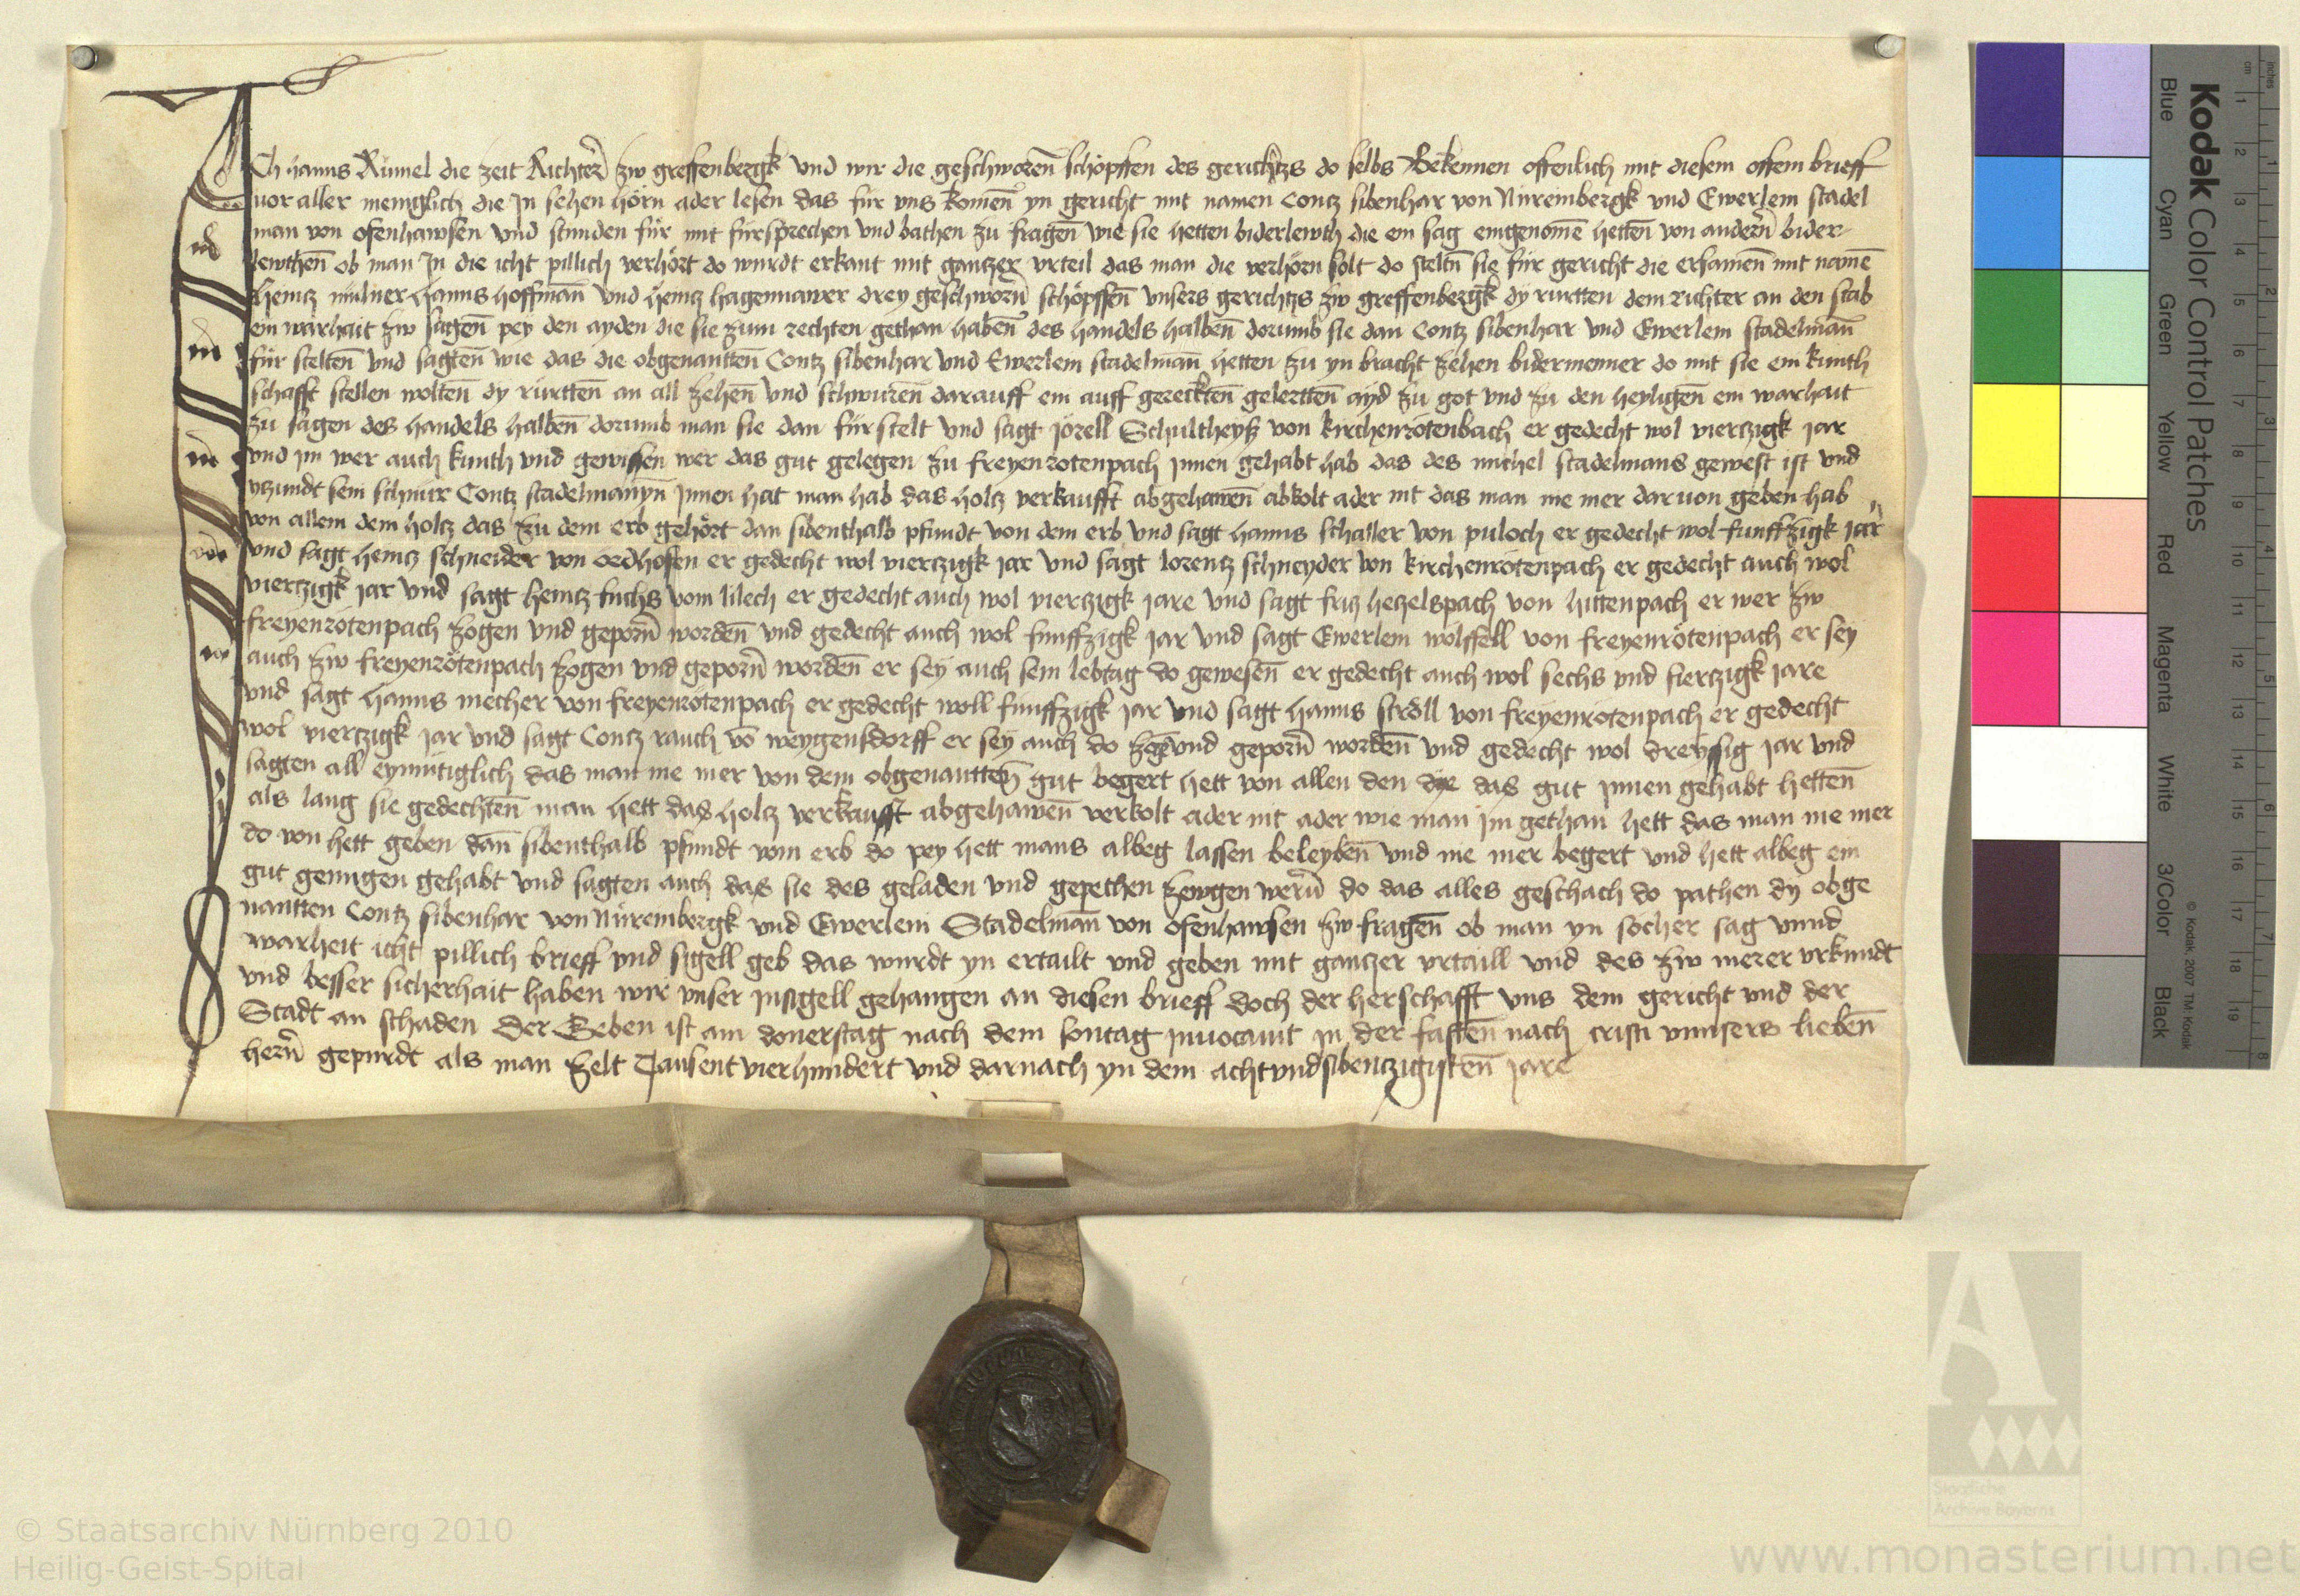 Ich hanns Rümel die zeit Richter zw greffenbergk vnd wir die geschworen schöpffen des gerichtzs do selbs Bekennen offenlich mit diesem offem brieff
vor aller meniglich die Jn sehen hörn ader lesen das für vns komen yn gericht mit namen Contz sibenhar von Nürembergk vnd Ewerlein stadel
man von ofenhawsen vnd stunden für mit fürsprechen vnd bathen zu fragen wie sie hetten biderlewth die ein sag eingenomē hetten von andern bider-
lewthen ob man Jn die icht pillich verhört do wurdt erkant mit gantzer vrteil das man die verhörn solt do steltn sie für gericht die ersamen mit namē
Heintz mülner hanns hoffman vnd heintz hagenmawer drey geschworn schöpffen vnsers gerichtzs zw greffenbergk dy rurtten dem richter an den stab
ein warhait zw sagen pey den ayden die sie zum rechten gethan haben des handels halben dorumb sie dan Contz sibenhar vnd Ewerlein stadelman
für stelten vnd sagten wie das die obgenantten Contz sibenhar vnd Ewerlein stadelman hetten zu yn bracht zehen bidermenner do mit sie ein kunth
schafft stellen wolten dy rürtten an all zehen vnd schwuren darauff ein auff gereckten gelertten ayd zu got vnd zu den heyligen ein warhait
zu sagen des handels halben dorumb man sie dan für stelt vnd sagt Jörell Schultheyß von kirchenrötenbach er gedecht wol viertzigk jar
vnd jm wer auch kunth vnd gewissen wer das gut gelegen zu freyenrotenpach jnnen gehabt hab das des michel stadelmans gewest ist vnd
ytzundt sein schnur Contz stadelmanyn jnnen hat man hab das holtz verkaufft abgehawen abkolt ader nit das man nie mer daruon geben hab
von allem dem holtz das zu dem erb gehört dan sibenthalb pfundt von dem erb vnd sagt hanns schaller von puloch er gedecht wol funffzigk jar
vnd sagt heintz schneider von oedhofen er gedecht wol viertzigk jar vnd sagt lorentz schneyder von kirchenrötenpach er gedecht auch wol
viertzigk jar vnd sagt heintz fuchs vom lilech er gedecht auch wol viertzigk jare vnd sagt fritz hetzelspach von hittenpach er wer zw
freyenrötenpach zogen vnd geporn worden vnd gedecht auch wol funffzigk jar vnd sagt Ewerlein wolffell von freyenrötenpach er sey
auch zw freyenrötenpach zogen vnd geporn worden er sey auch sein lebtag do gewesen er gedecht auch wol sechs vnd fiertzigk jare
vnd sagt hanns mecher von freyenrotenpach er gedecht woll funffzigk jar vnd sagt hanns ströll von freyenrotenpach er gedecht
wol viertzigk jar vnd sagt Contz rauch vō weygensdorff er sey auch do zogē vnd geporn worden vnd gedecht wol dreyssig jar vnd
sagten all eynmütiglich das man nie mer von dem obgenantten gut begert hett von allen den dye das gut jnnen gehabt hetten
als lang sie gedechten man hett das holtz verkaufft abgehawen verkolt ader nit ader wie man jm gethan hett das man nie mer
do von hett geben dan sibenthalb pfundt vom erb do pey hett mans albeg lassen beleyben vnd nie mer begert vnd hett albeg ein
gut genugen gehabt vnd sagten auch das sie des geladen vnd gepethen zewgen wern do das alles geschach do pathen dy obge
nantten Contz sibenhar von Nürembergk vnd Ewerlein Stadelman von ofenhawsen zw fragen ob man yn socher sag vnnd
warheit icht pillich brieff vnd sigell geb das wurdt yn ertailt vnd geben mit gantzer vrtaill vnd des zw merer vrkundt
vnd besser sicherhait haben wir vnser jnsigell gehangen an diesen brieff doch der herschafft vns dem gericht vnd der
Stadt an schaden Der Geben ist am donerstag nach dem sontag jnuocauit jn der fasten nach cristi vnnsers lieben
hern gepurdt als man zelt Tausent vierhundert vnd darnach yn dem achtvndsibentzigisten jare
Kodak Color Control Patches
Blue Cyan Green Yellow Red Magenta White 3/Color Black
© Kodak, 2007 TM: Kodak
inches
cm
1 2 3 4 5 6 7 8 9 10 11 12 13 14 15 16 17 18 19
1 2 3 4 5 6 7 8
Staatliche
Archive Bayerns
© Staatsarchiv Nürnberg 2010
Heilig-Geist-Spital
www.monasterium.net